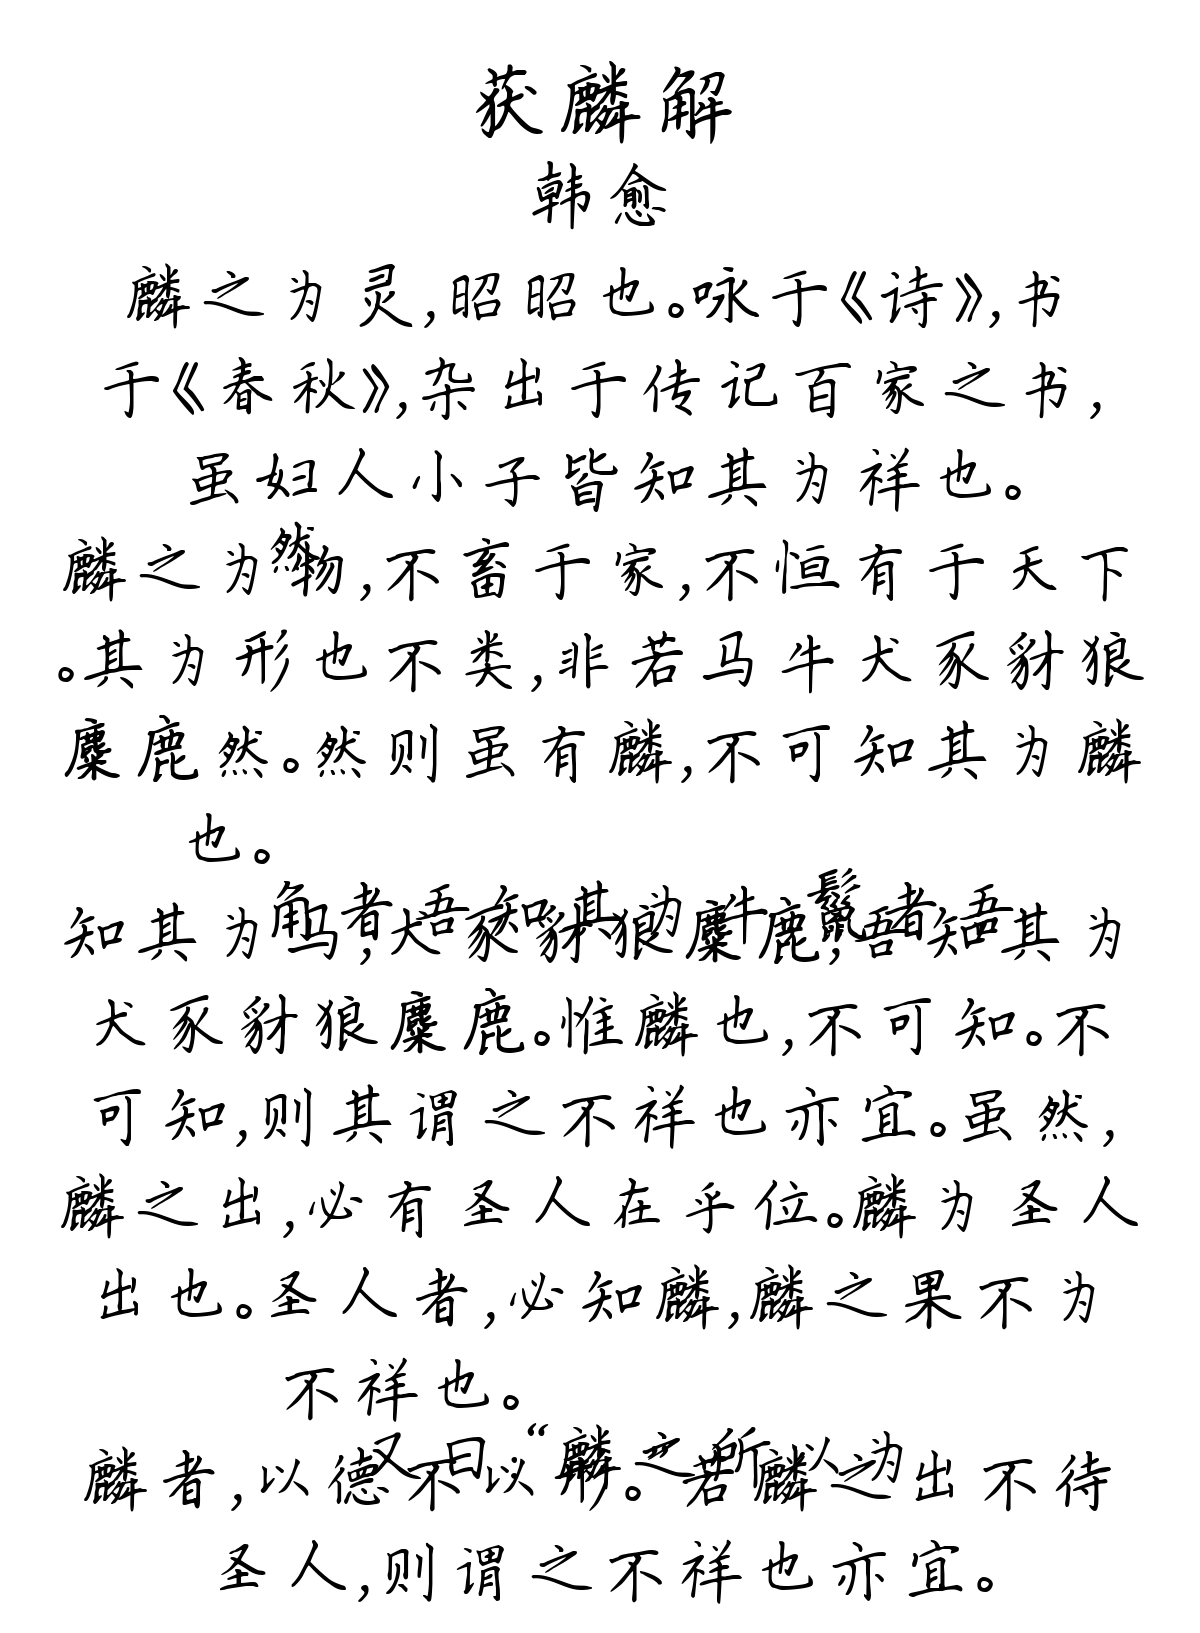 获麟解
韩愈
麟之为灵,昭昭也。咏于《诗》,书
于《春秋》,杂出于传记百家之书,
虽妇人小子皆知其为祥也。
然
麟之为物,不畜于家,不恒有于天下
。其为形也不类,非若马牛犬豕豺狼
麋鹿然。然则虽有麟,不可知其为麟
也。
角者吾知其为牛,鬣者吾
知其为马,犬豕豺狼麋鹿,吾知其为
犬豕豺狼麋鹿。惟麟也,不可知。不
可知,则其谓之不祥也亦宜。虽然,
麟之出,必有圣人在乎位。麟为圣人
出也。圣人者,必知麟,麟之果不为
不祥也。
又曰:“麟之所以为
麟者,以德不以形。”若麟之出不待
圣人,则谓之不祥也亦宜。